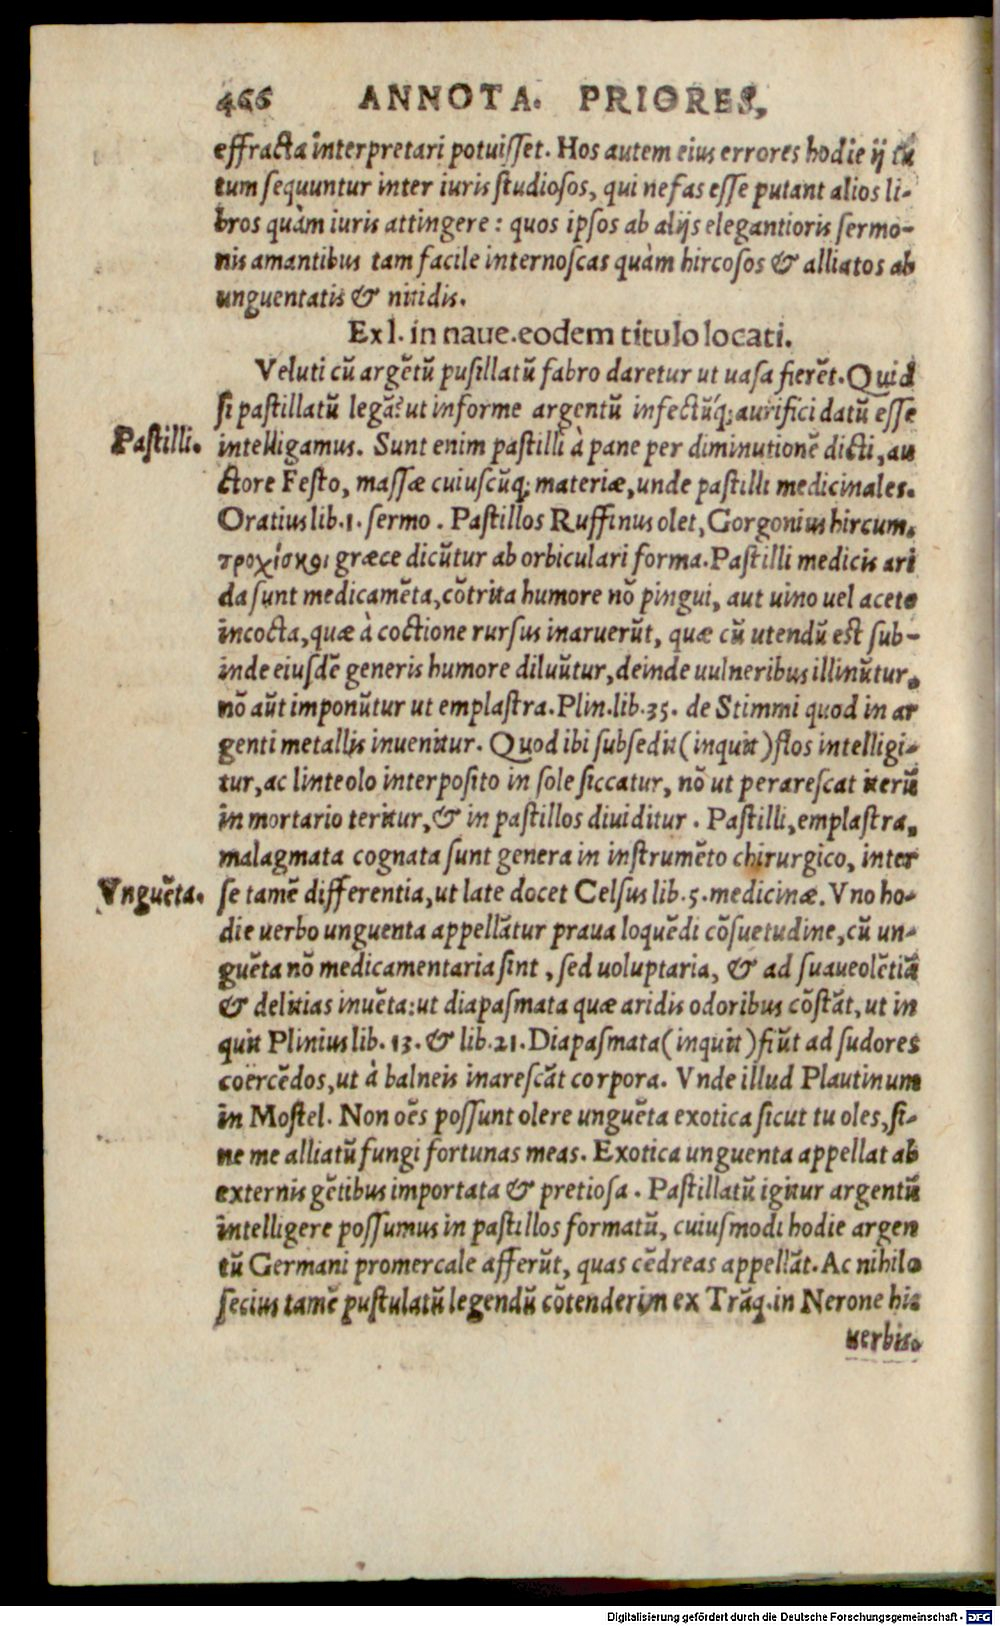 466 ANNOTA. PRIORES,
effracta interpretari potuisset. Hos autem eius errores hodie ij tu
tum sequuntur inter iuris studiosos, qui nefas esse putant alios li-
bros quàm iuris attingere: quos ipsos ab alijs elegantioris sermo-
nis amantibus tam facile internoscas quàm hircosos & alliatos ab
unguentatis & nitidis.
Ex l. in naue. eodem titulo locati.
Veluti cũ argẽtũ pusillatũ fabro daretur ut uasa fierẽt. Quid
si pastillatũ legãs ut informe argentũ infectũq; aurifici datũ esse
Pastilli.
intelligamus. Sunt enim pastilli à pane per diminutionẽ dicti, au
ctore Festo, massæ cuiuscũq; materiæ, unde pastilli medicinales.
Oratius lib. 1. sermo. Pastillos Ruffinus olet, Gorgonius hircum.
τροχίσκοι græce dicũtur ab orbiculari forma. Pastilli medicis ari
da sunt medicamẽta, cõtrita humore nõ pingui, aut uino uel aceto
incocta, quæ à coctione rursus inaruerũt, quæ cũ utendũ est sub-
inde eiusdẽ generis humore diluũtur, deinde uulneribus illinũtur,
nõ aũt imponũtur ut emplastra. Plin. lib. 35. de Stimmi quod in ar
genti metallis inuenitur. Quod ibi subsedit (inquit) flos intelligi-
tur, ac linteolo interposito in sole siccatur, nõ ut perarescat iterũ
in mortario teritur, & in pastillos diuiditur. Pastilli, emplastra,
malagmata cognata sunt genera in instrumẽto chirurgico, inter
Vnguẽta.
se tamẽ differentia, ut late docet Celsus lib. 5. medicinæ. Vno ho-
die uerbo unguenta appellãtur praua loquẽdi cõsuetudine, cũ un-
guẽta nõ medicamentaria sint, sed uoluptaria, & ad suaueolẽtiã
& delitias inuẽta: ut diapasmata quæ aridis odoribus cõstãt, ut in
quit Plinius lib. 13. & lib. 21. Diapasmata (inquit) fiũt ad sudores
coërcẽdos, ut à balneis inarescãt corpora. Vnde illud Plautinum
in Mostel. Non oẽs possunt olere unguẽta exotica sicut tu oles, si-
ne me alliatũ fungi fortunas meas. Exotica unguenta appellat ab
externis gẽtibus importata & pretiosa. Pastillatũ igitur argentũ
intelligere possumus in pastillos formatũ, cuiusmodi hodie argen
tũ Germani promercale afferũt, quas cẽdreas appellãt. Ac nihilo
secius tamẽ pustulatũ legendũ cõtenderim ex Trãq. in Nerone his
uerbis.
Digitalisierung gefördert durch die Deutsche Forschungsgemeinschaft - DFG